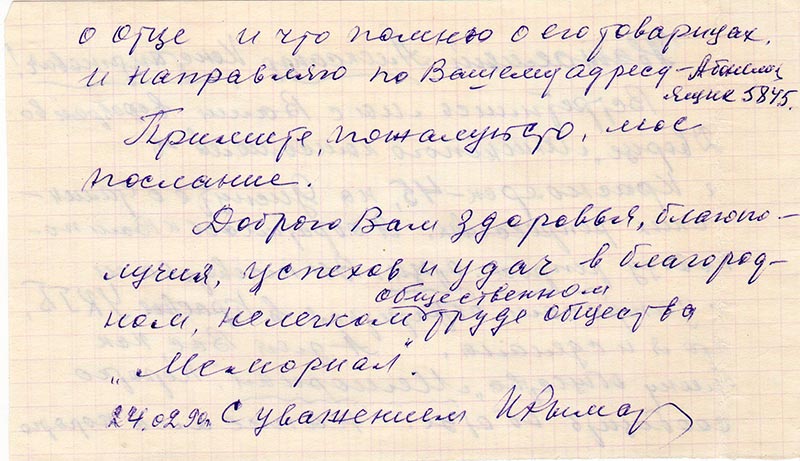 о отце и что помню о его товарищах,
и направляю по Вашему адресу – Абонемен.
ящик 5845.
Примите, пожалуйста, мое
послание.
Доброго Вам здоровья, благопо-
лучия, успехов и удач в благород-
общественном
ном, нелегком труде общества
„Мемориал".
24.02.90г. С уважением